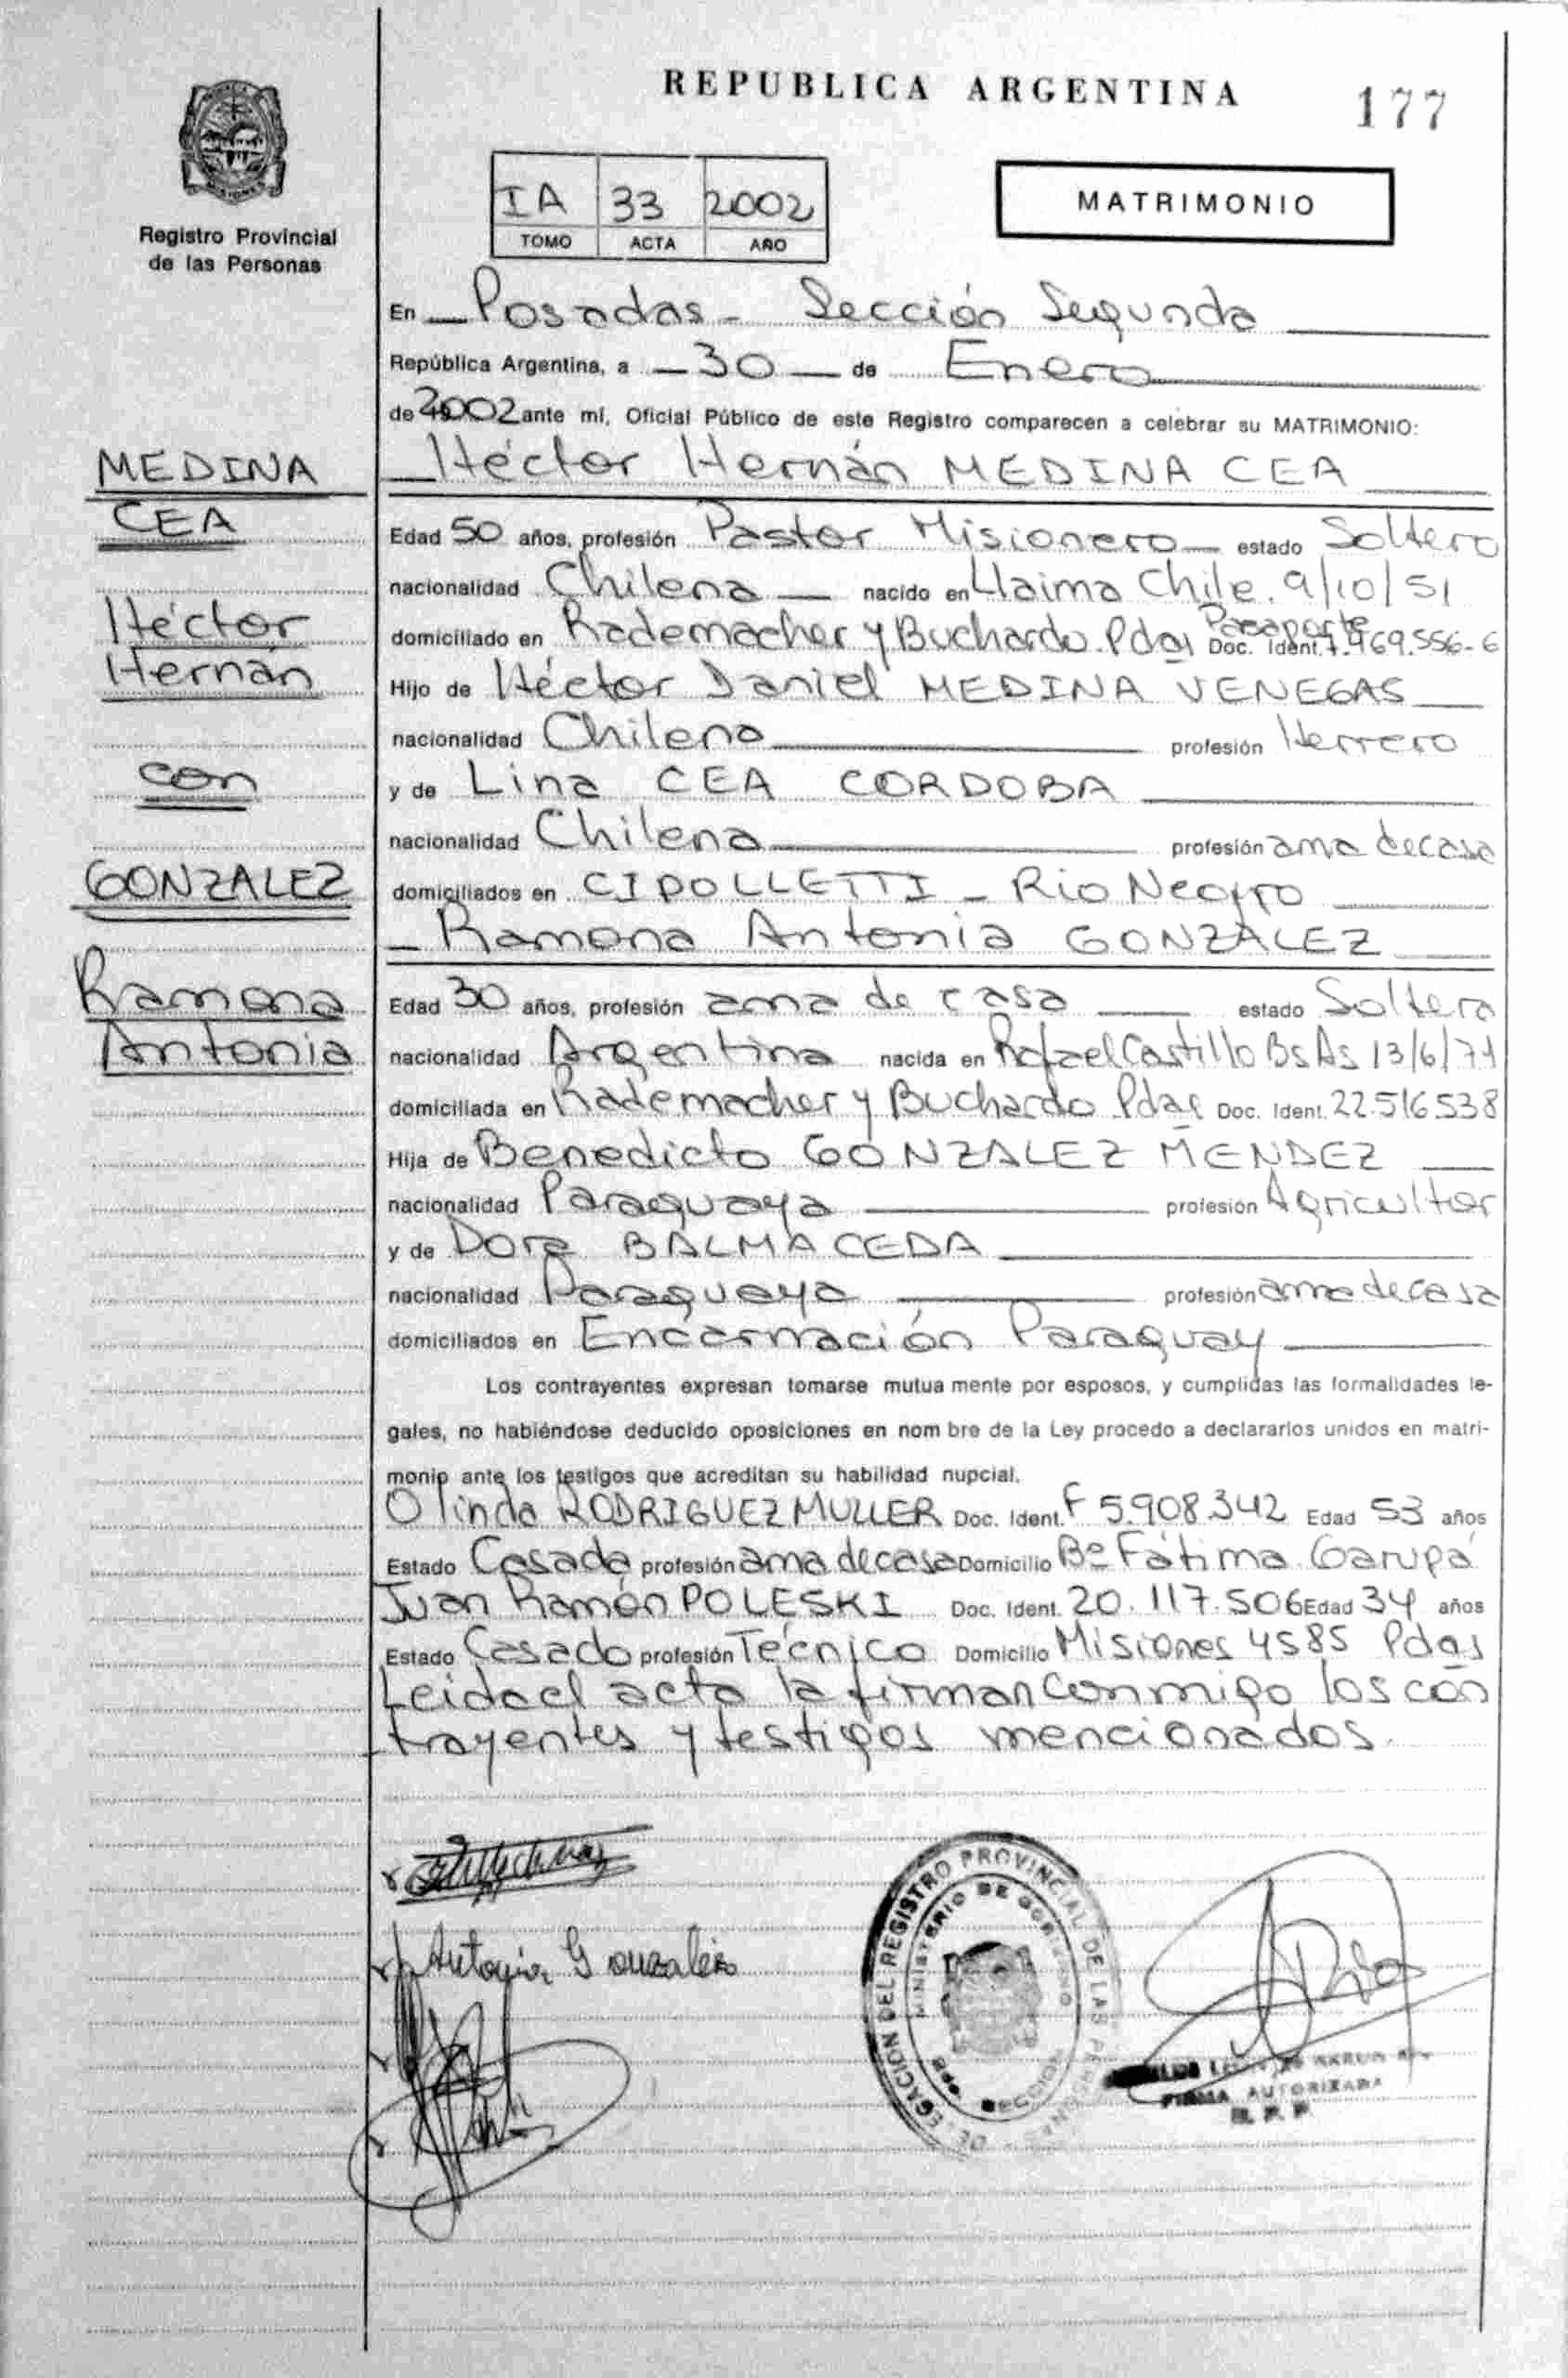 REPUBLICA ARGENTINA
177
MISIONES
Registro Provincial
de las Personas
IA 33 2002
TOMO ACTA AÑO
MATRIMONIO
En Posadas - Sección Segunda
República Argentina, a 30 de Enero
de 2002 ante mí, Oficial Público de este Registro comparecen a celebrar su MATRIMONIO:
MEDINA
CEA
Héctor
Hernán
con
GONZALEZ
Ramona
Antonia
Héctor Hernán MEDINA CEA
Edad 50 años, profesión Pastor Misionero estado Soltero
nacionalidad Chilena nacido en Llaima Chile. 9/10/51
domiciliado en Rademacher y Buchardo. Pdas Pasaporte Doc. Ident. 7.969.556-6
Hijo de Héctor Daniel MEDINA VENEGAS
nacionalidad Chilena profesión Herrero
y de Lina CEA CORDOBA
nacionalidad Chilena profesión ama de casa
domiciliados en CIPOLLETTI - Rio Negro
Ramona Antonia GONZALEZ
Edad 30 años, profesión ama de casa estado Soltera
nacionalidad Argentina nacida en Rafael Castillo Bs As 13/6/71
domiciliada en Rademacher y Buchardo Pdas Doc. Ident. 22.516.538
Hija de Benedicto GONZALEZ MENDEZ
nacionalidad Paraguaya profesión Agricultor
y de Dora BALMACEDA
nacionalidad Paraguaya profesión ama de casa
domiciliados en Encarnación Paraguay
Los contrayentes expresan tomarse mutua mente por esposos, y cumplidas las formalidades le-
gales, no habiéndose deducido oposiciones en nom bre de la Ley procedo a declararlos unidos en matri-
monio ante los testigos que acreditan su habilidad nupcial.
Olinda RODRIGUEZ MULLER Doc. Ident. F 5.908.342 Edad 53 años
Estado Casada profesión ama de casa Domicilio Bº Fátima. Garupá
Juan Ramón POLESKI Doc. Ident. 20.117.506 Edad 34 años
Estado Casado profesión Técnico Domicilio Misiones 4585 Pdas
Leida el acta la firman conmigo los con
trayentes y testigos mencionados.
Antonia Gonzalez
DELEGACION DEL REGISTRO PROVINCIAL DE LAS PERSONAS
MINISTERIO DE GOBIERNO
FIRMA AUTORIZADA
R. P. P.